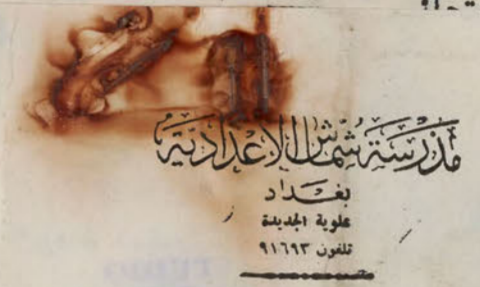 مدرسة شماش الاعدادية
بغداد
علوية الجديدة
تلفون ٩١٦٩٣